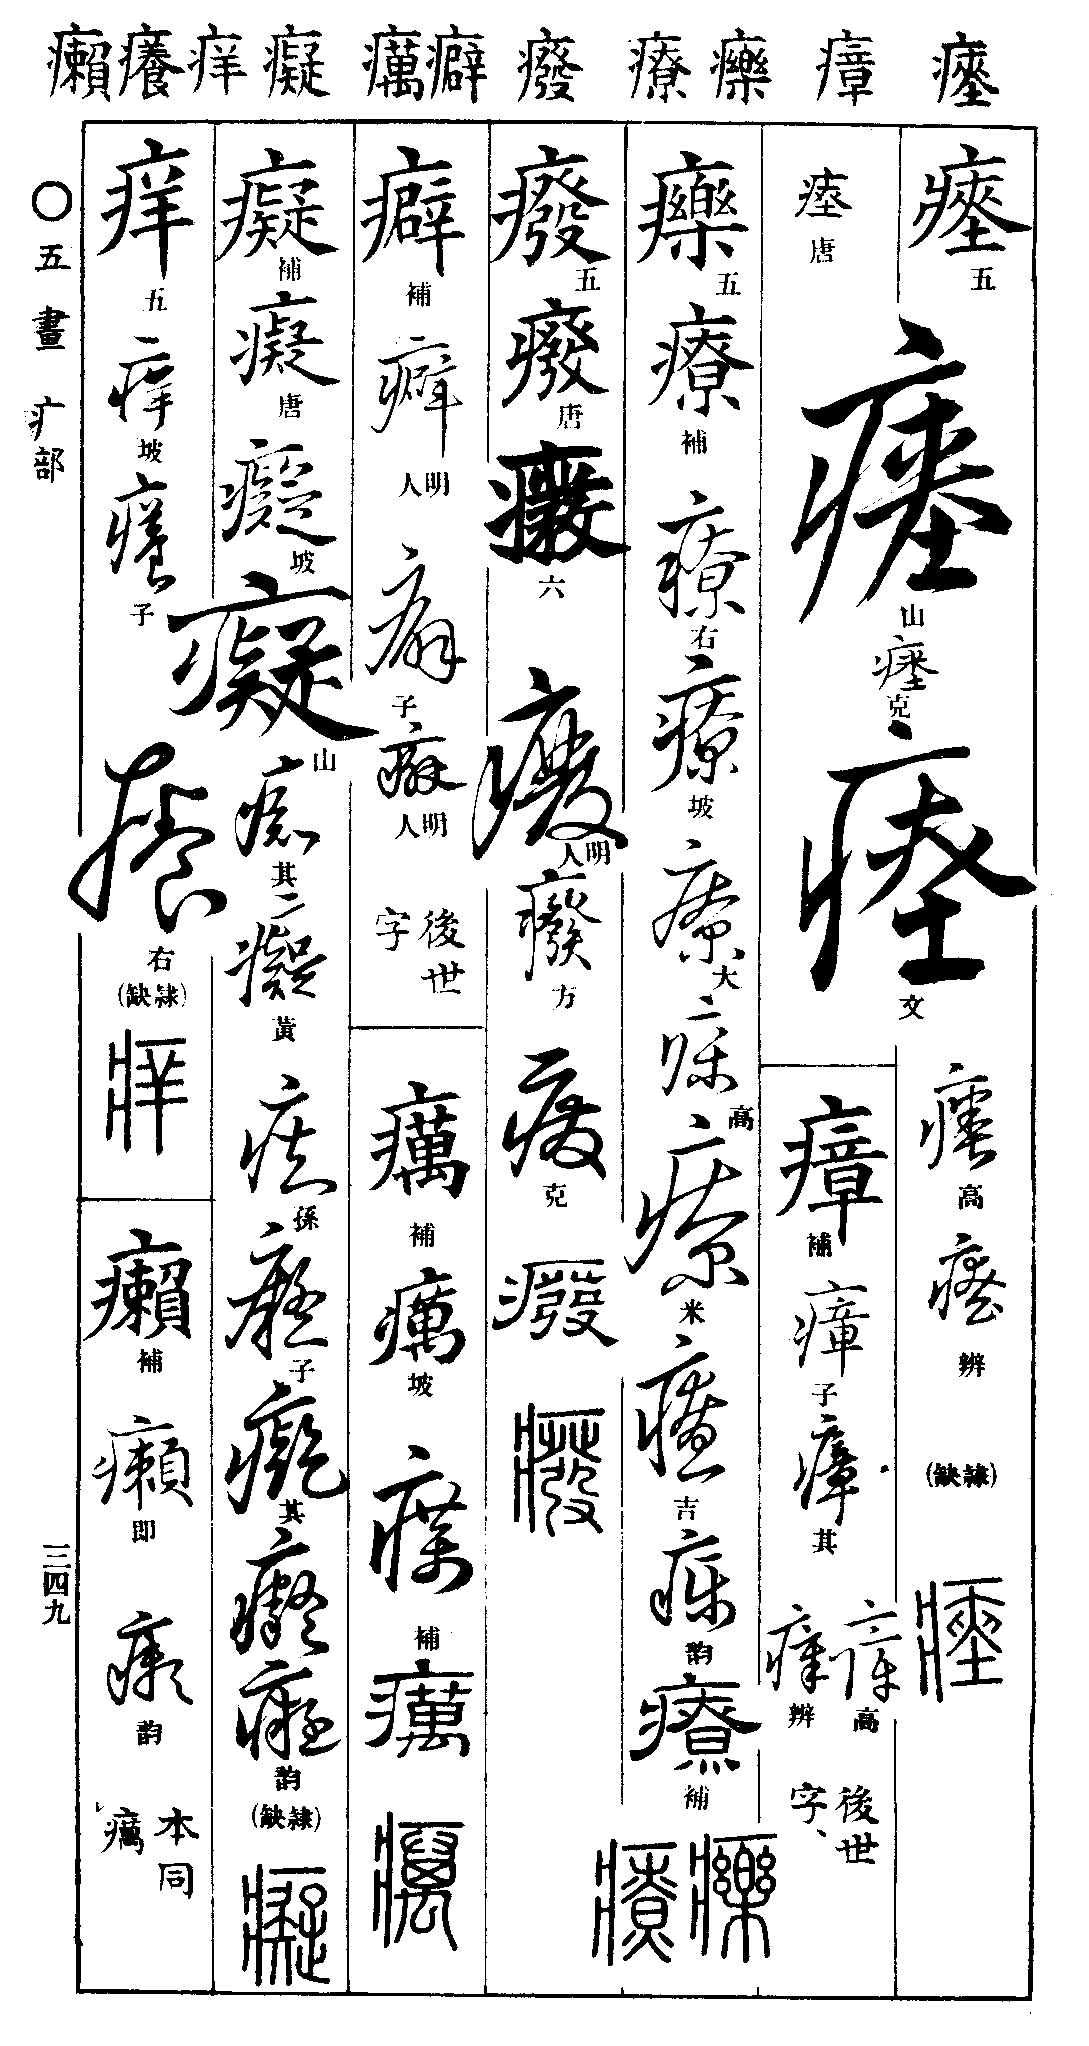 瘞 瘴 𤻲 療 癈 癖 癘 癡 痒 癢 癩
瘞 五
山
瘞 克
文
瘞 高
瘞 辨
(隸缺)
瘞
瘞 唐
瘴 補
瘴 子
瘴 其
瘴 高
瘴 辨
後世字、
𤻲 五
療 補
療 右
療 坡
療 大
療 高
療 米
療 吉
療 韵
療 補
癈 五
癈 唐
癈 六
癈 明人
癈 方
癈 克
癈
癈
癖 補
癖 明人
癖 子
癖 明人
後世字
癘 補
癘 坡
癘 補
癘
癘
癡 補
癡 唐
癡 坡
癡 山
癡 其二
癡 黃
癡 孫
癡 子
癡 其
癡
癡 韵
(隸缺)
癡
痒 五
痒 坡
癢 子
癢 右
(隸缺)
痒
癩 補
癩 即
癩 韵
本同癘
〇五畫 疒部
三四九